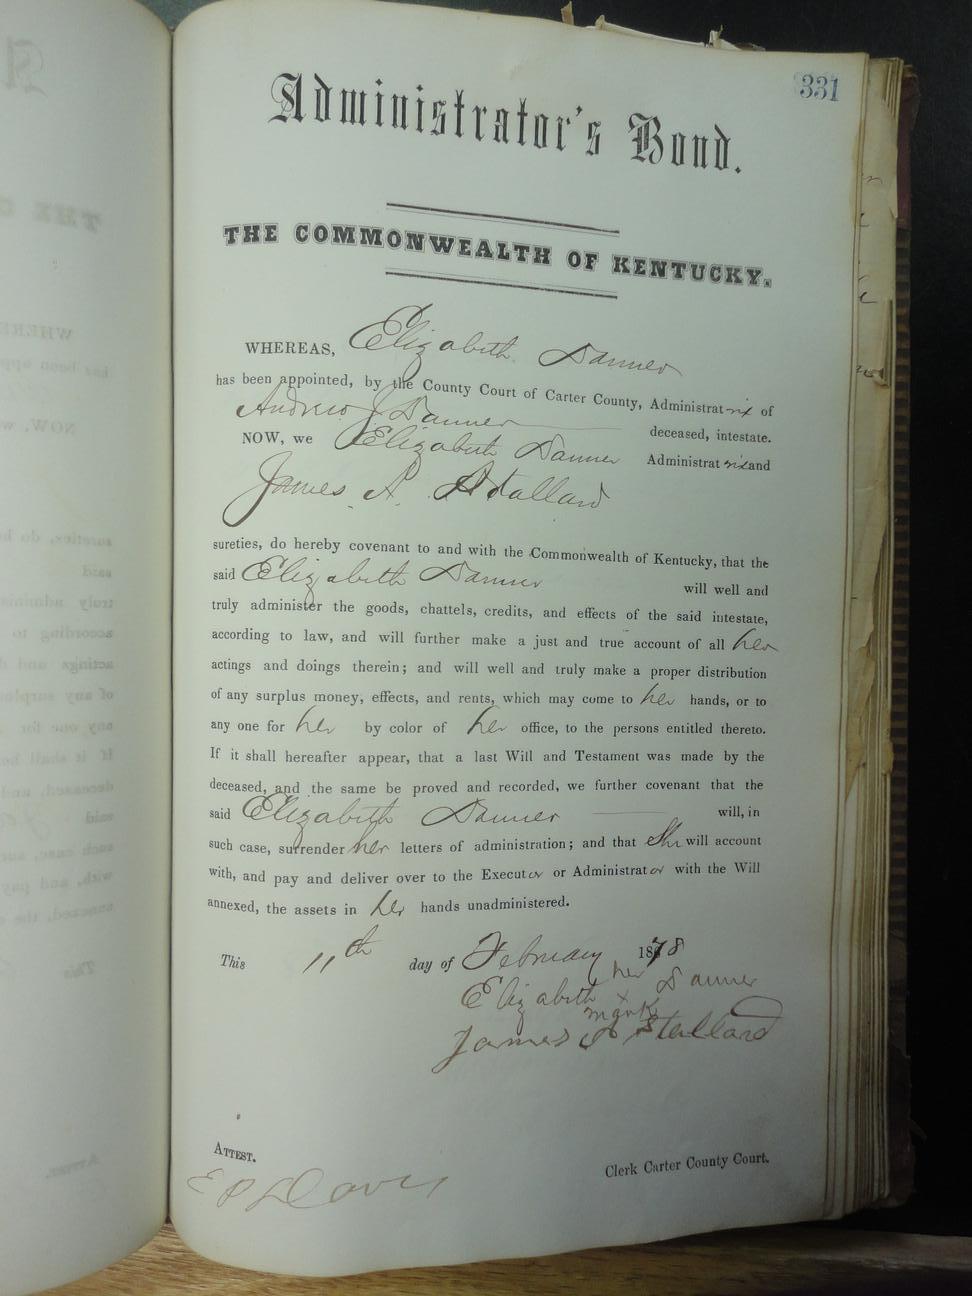 331
Administrator's Bond.
THE COMMONWEALTH OF KENTUCKY.
WHEREAS, Elizabeth Danner
has been appointed, by the County Court of Carter County, Administratrix of
Andrew J Danner deceased, intestate.
NOW, we Elizabeth Danner Administratrix and
James A. Stallard
sureties, do hereby covenant to and with the Commonwealth of Kentucky, that the
said Elizabeth Danner will well and
truly administer the goods, chattels, credits, and effects of the said intestate,
according to law, and will further make a just and true account of all her
actings and doings therein; and will well and truly make a proper distribution
of any surplus money, effects, and rents, which may come to her hands, or to
any one for her by color of her office, to the persons entitled thereto.
If it shall hereafter appear, that a last Will and Testament was made by the
deceased, and the same be proved and recorded, we further covenant that the
said Elizabeth Danner will, in
such case, surrender her letters of administration; and that She will account
with, and pay and deliver over to the Executor or Administrator with the Will
annexed, the assets in her hands unadministered.
This 11th day of February 1878
her
Elizabeth x Danner
mark
James A Stallard
ATTEST.
Clerk Carter County Court.
Davis